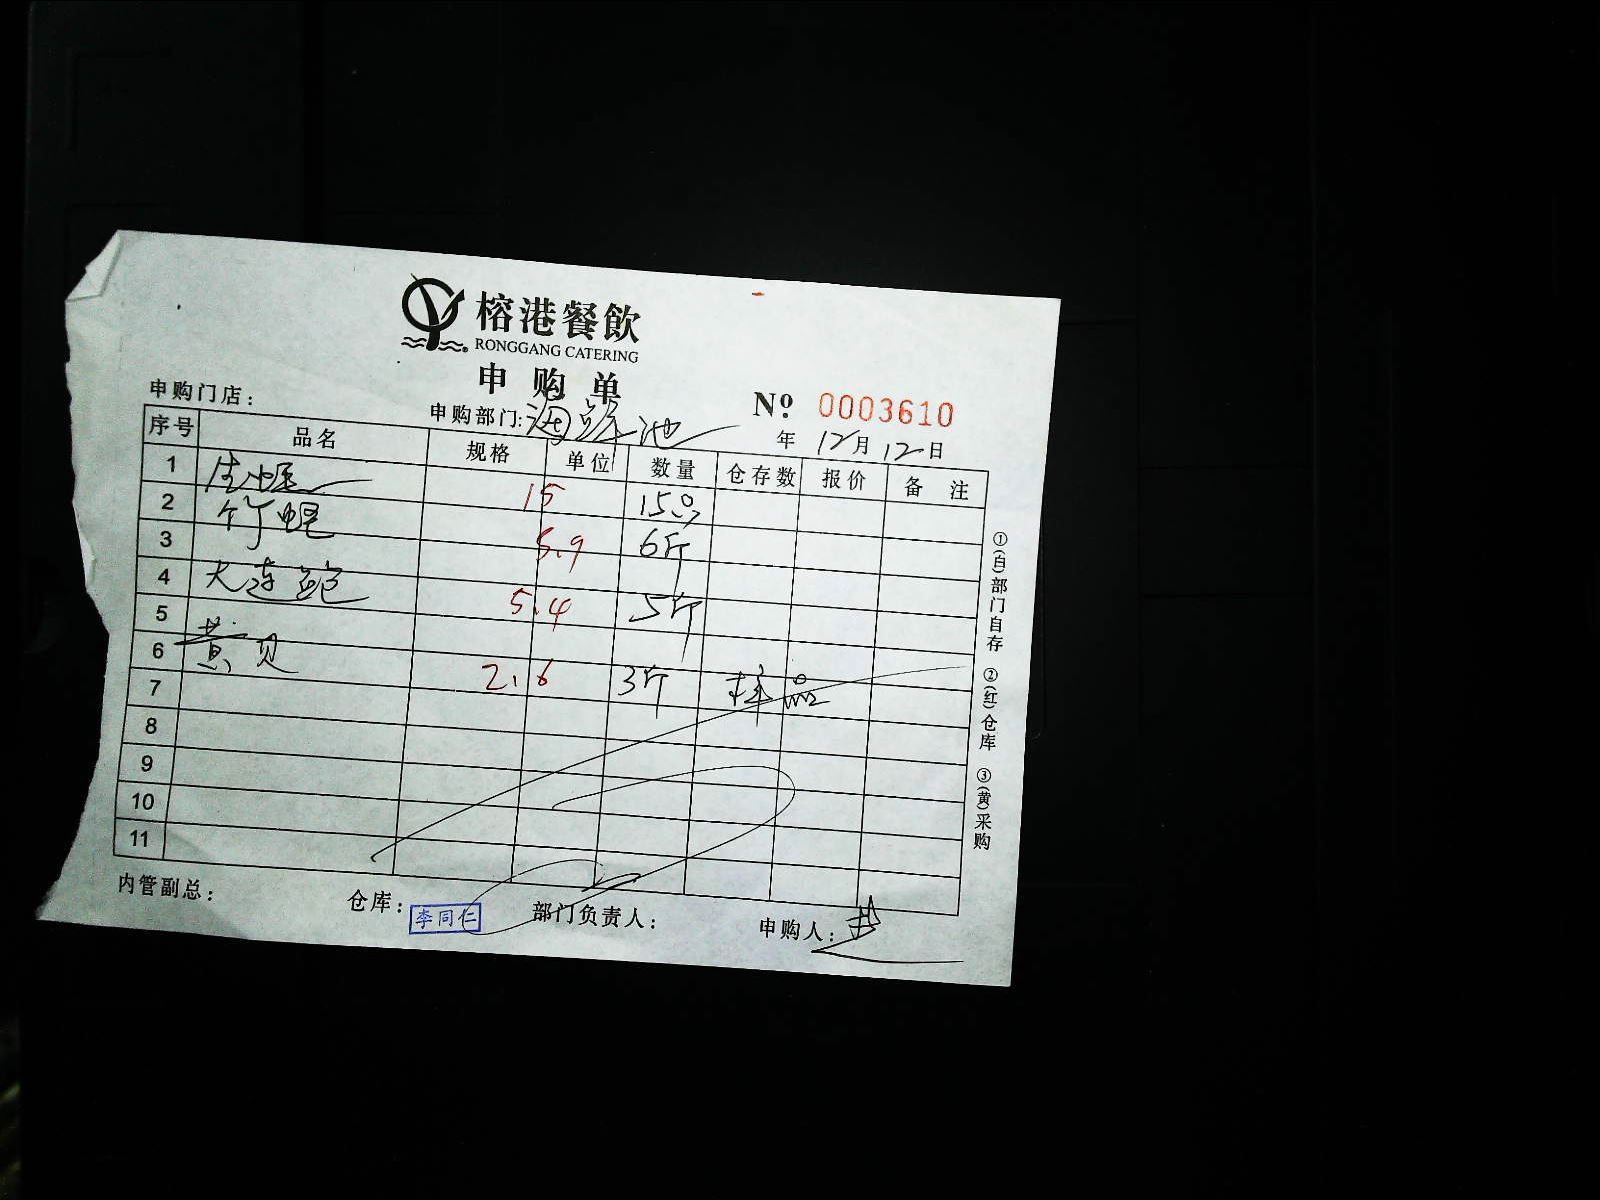 榕港餐飲
RONGGANG CATERING
申购单
申购门店：
申购部门：海鲜池
No. 0003610
年 12月 12日
序号 品名 规格 单位 数量 仓存数 报价 备注
1 生蚝 15 15只
2 竹蛏
3 5.9 6斤
4 大连鲍 5.4 5斤
5
6 黄贝 2.6 3斤 样品
7
8
9
10
11
①(白)部门自存 ②(红)仓库 ③(黄)采购
内管副总： 仓库：李同仁 部门负责人： 申购人：